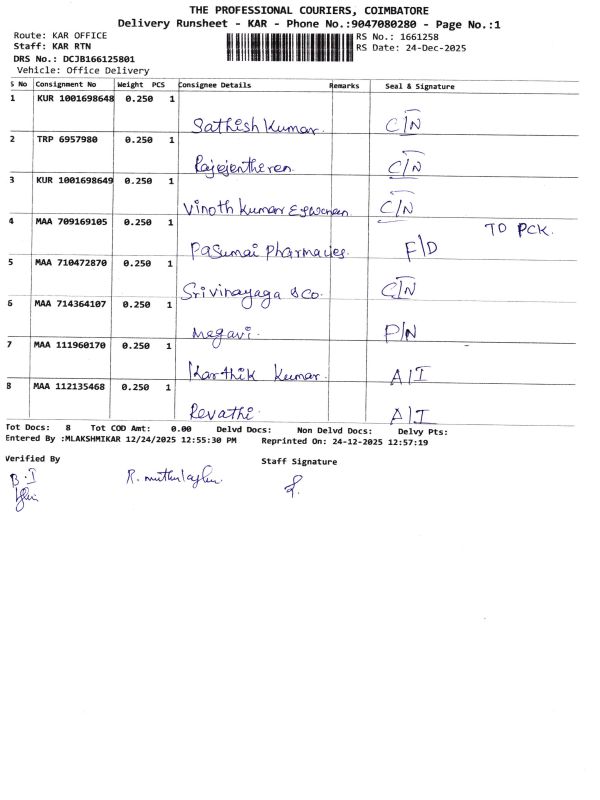 THE PROFESSIONAL COURIERS, COIMBATORE
Delivery Runsheet - KAR - Phone No.:9047080280 - Page No.:1
Route: KAR OFFICE RS No.: 1661258
Staff: KAR RTN RS Date: 24-Dec-2025
DRS No.: DCJB166125801
Vehicle: Office Delivery
S No Consignment No Weight PCS Consignee Details Remarks Seal & Signature
1 KUR 1001698648 0.250 1
Sathish Kumar. C/N
2 TRP 6957980 0.250 1
Rajejentheren. C/N
3 KUR 1001698649 0.250 1
Vinoth Kumar Eswaran C/N
4 MAA 709169105 0.250 1 TO PCK.
Pasumai Pharmacies. F/D
5 MAA 710472870 0.250 1
Srivinayaga & Co. C/N
6 MAA 714364107 0.250 1
Megavi. P/N
7 MAA 111960170 0.250 1
Karthik Kumar. A/I
8 MAA 112135468 0.250 1
Revathi. A/I
Tot Docs: 8 Tot COD Amt: 0.00 Delvd Docs: Non Delvd Docs: Delvy Pts:
Entered By :MLAKSHMIKAR 12/24/2025 12:55:30 PM Reprinted On: 24-12-2025 12:57:19
Verified By Staff Signature
B.I